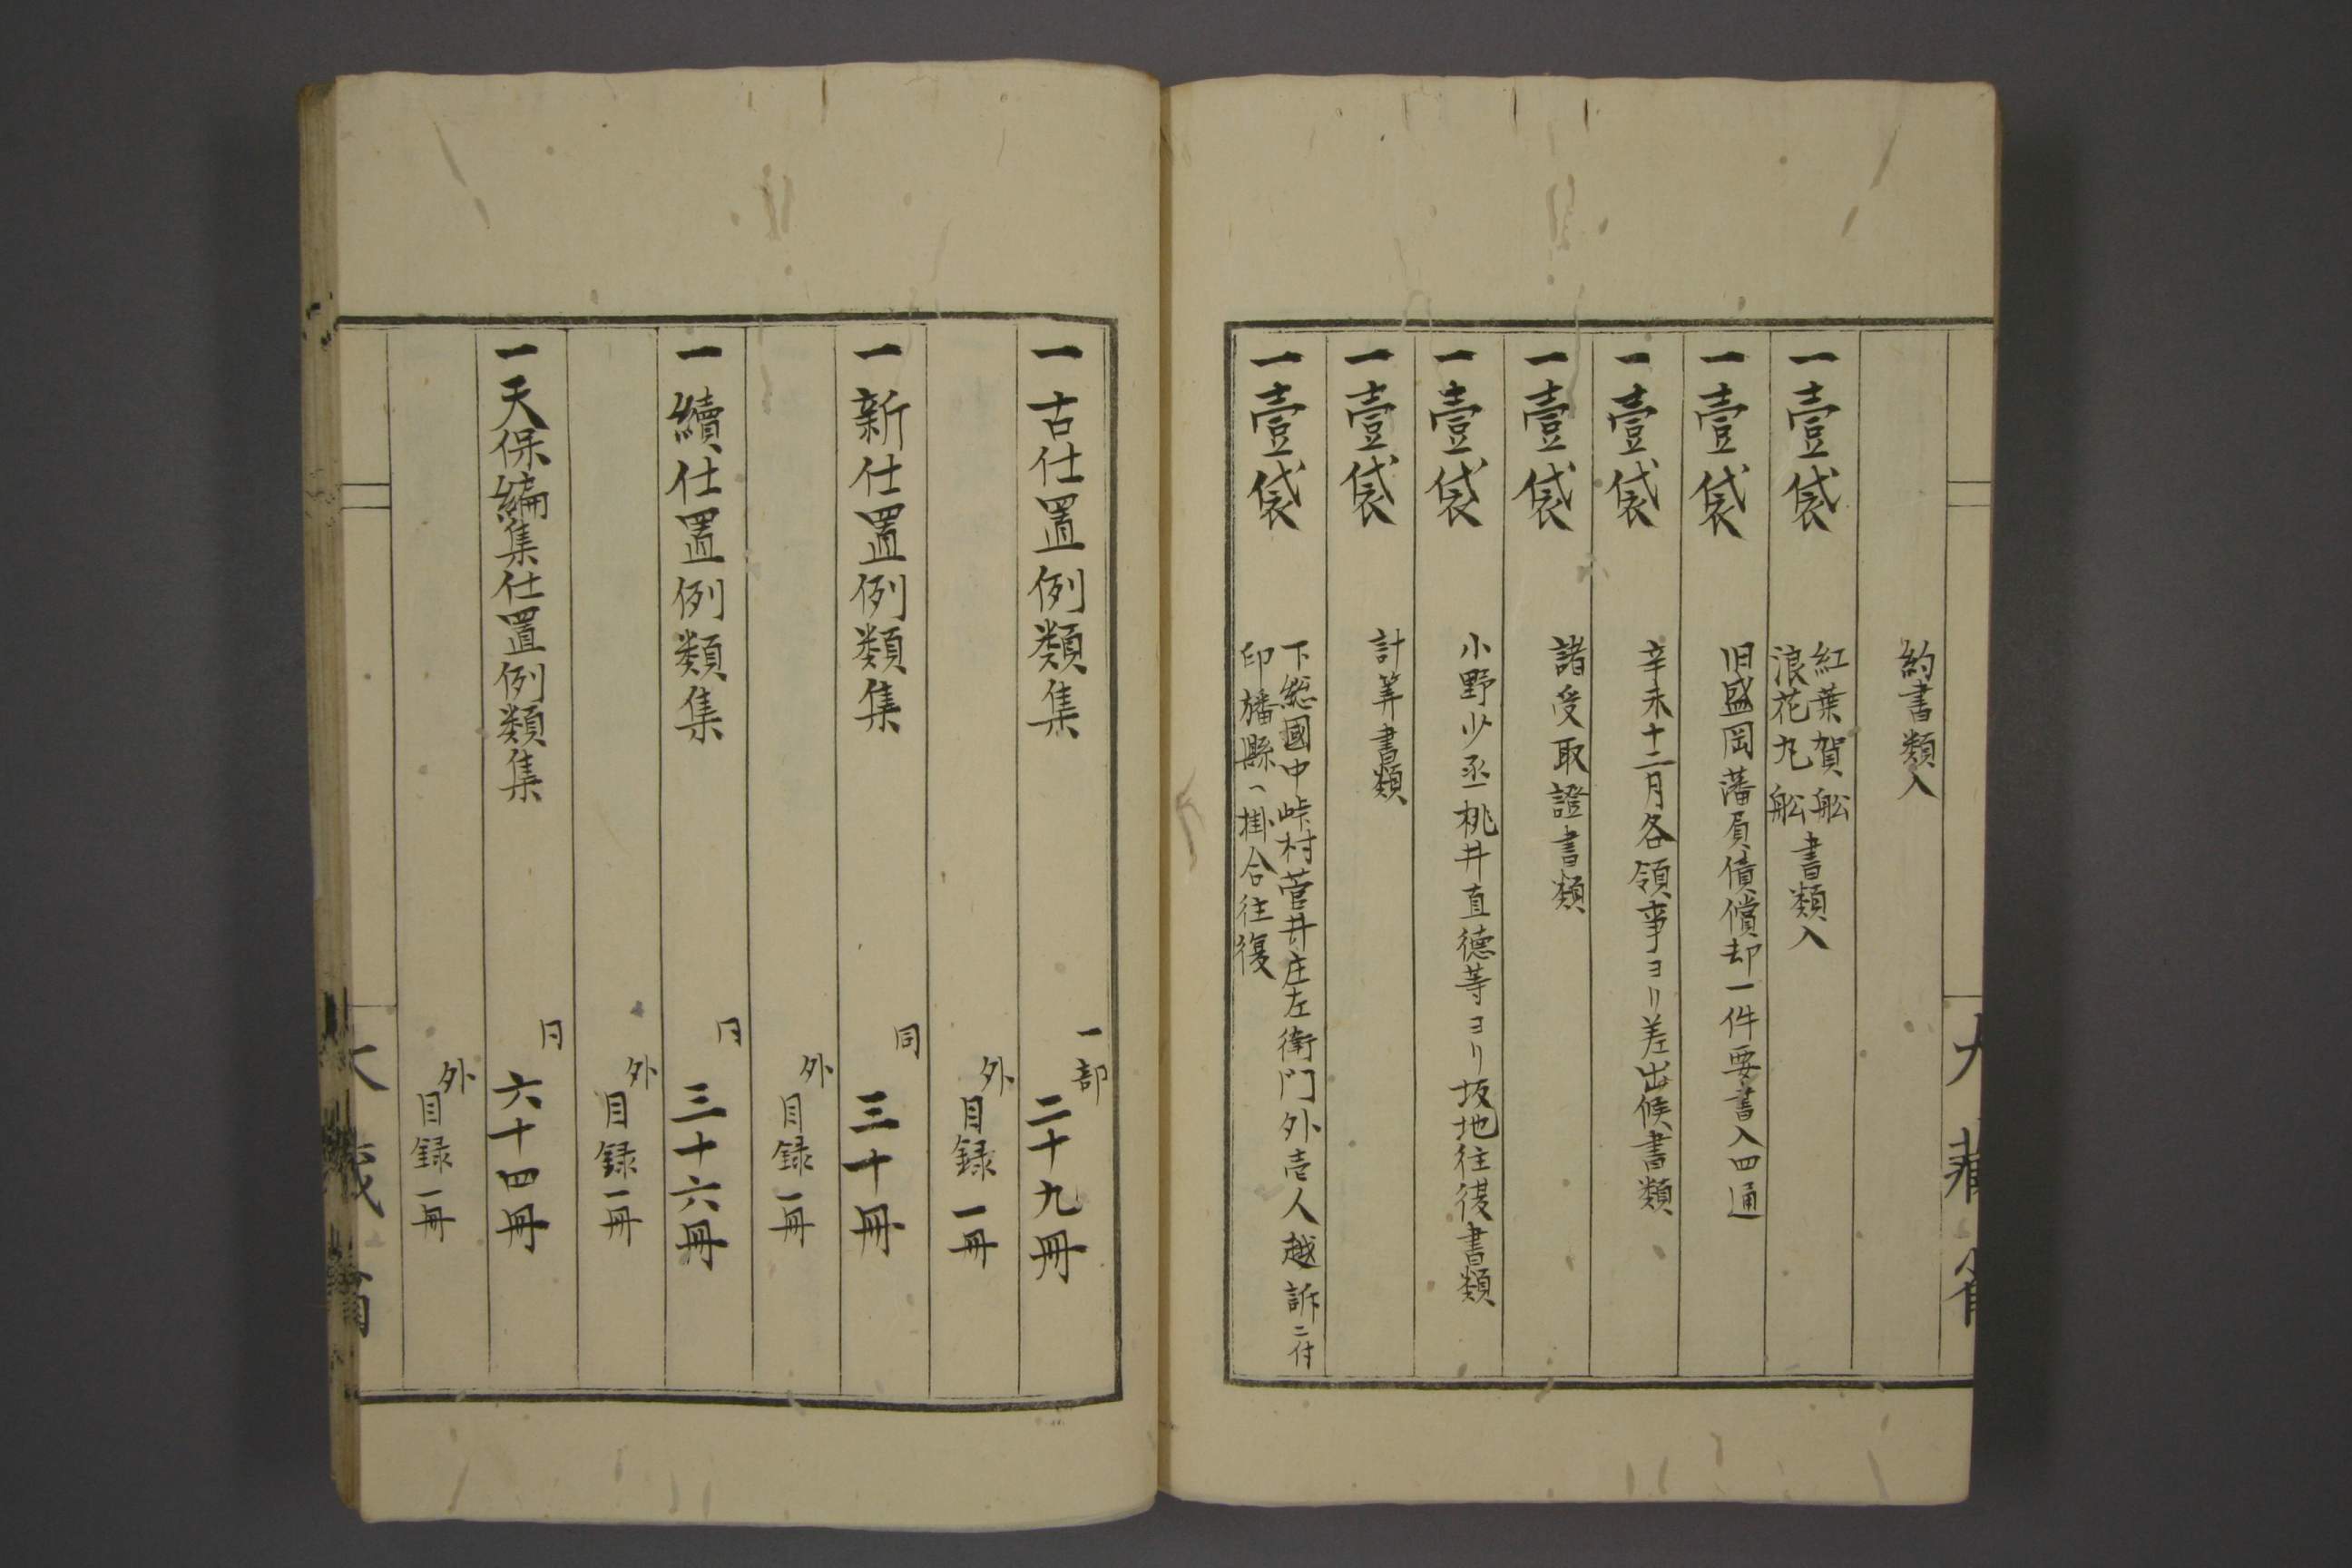 約書類入
一壹袋 紅葉賀舩
浪花丸舩 書類入
一壹袋 旧盛岡藩負債償却一件要書入四通
一壹袋 辛未十二月各領事ヨリ差出候書類
一壹袋 諸受取證書類
一壹袋 小野少丞桃井直德等ヨリ坂地往復書類
一壹袋 計筭書類
一壹袋 下総國中峠村菅井庄左衛門外壱人越訴ニ付
印旛縣へ掛合往復
大藏省
一古仕置例類集 一部 二十九冊
外目録一冊
一新仕置例類集 同 三十冊
外目録一冊
一續仕置例類集 同 三十六冊
外目録一冊
一天保編集仕置例類集 同 六十四冊
外目録一冊
大藏省